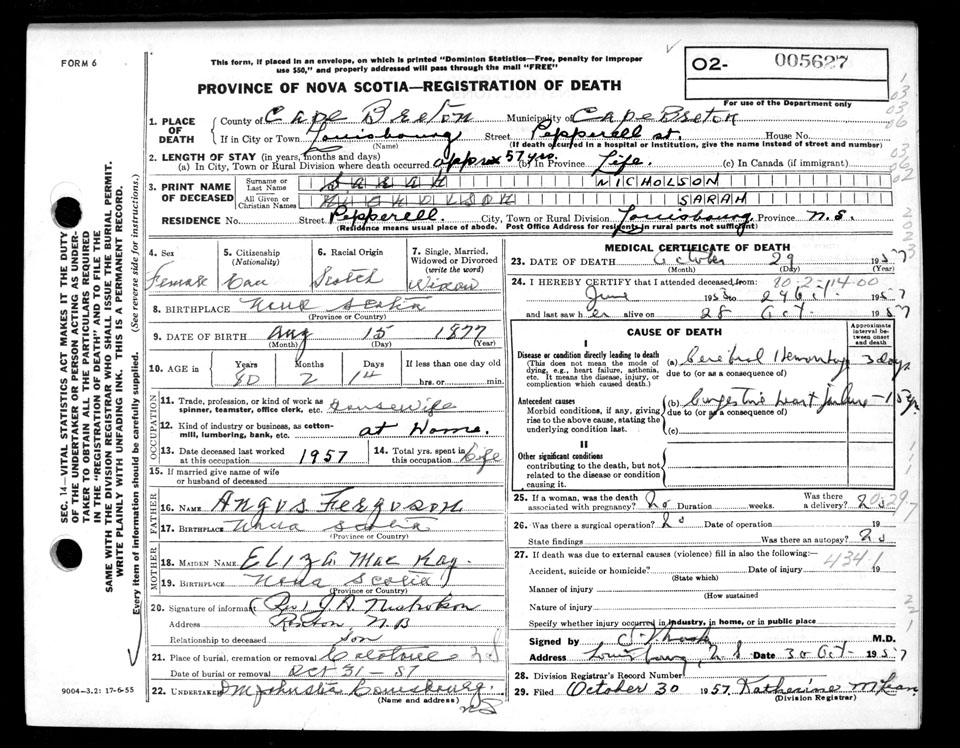 FORM 6
This form, if placed in an envelope, on which is printed "Dominion Statistics—Free, penalty for improper
use $50," and properly addressed will pass through the mail "FREE"
O2- 005627
PROVINCE OF NOVA SCOTIA—REGISTRATION OF DEATH
For use of the Department only
1. PLACE OF DEATH
County of Cape Breton Municipality of Cape Breton
If in City or Town Louisbourg Street Pepperell st. House No.
(Name) (If death occurred in a hospital or institution, give the name instead of street and number)
2. LENGTH OF STAY (in years, months and days)
(a) In City, Town or Rural Division where death occurred approx 57 yrs. (b) In Province Life. (c) In Canada (if immigrant)
3. PRINT NAME OF DECEASED
Surname or Last Name SARAH NICHOLSON
All Given or Christian Names NICHOLSON SARAH
RESIDENCE No. Street Pepperell City, Town or Rural Division Louisbourg Province N.S.
(Residence means usual place of abode. Post Office Address for residents in rural parts not sufficient)
4. Sex Female
5. Citizenship (Nationality) Can
6. Racial Origin Scotch
7. Single, Married, Widowed or Divorced (write the word) Widow
8. BIRTHPLACE Nova Scotia
(Province or Country)
9. DATE OF BIRTH Aug 15 1877
(Month) (Day) (Year)
10. AGE in Years Months Days If less than one day old
80 2 14 hrs. or min.
OCCUPATION
11. Trade, profession, or kind of work as spinner, teamster, office clerk, etc. Housewife
12. Kind of industry or business, as cotton-mill, lumbering, bank, etc. at Home.
13. Date deceased last worked at this occupation 1957
14. Total yrs. spent in this occupation Life
15. If married give name of wife or husband of deceased
FATHER
16. NAME Angus Ferguson
17. BIRTHPLACE Nova Scotia
(Province or Country)
MOTHER
18. MAIDEN NAME Eliza MacKay.
19. BIRTHPLACE Nova Scotia
(Province or Country)
20. Signature of informant (Rev) J. A. Nicholson
Address N.B
Relationship to deceased Son
21. Place of burial, cremation or removal
Date of burial or removal Oct 31-57
22. Undertaker Johnston Louisbourg.
(Name and address) NS
9004-3.2: 17-6-55
MEDICAL CERTIFICATE OF DEATH
23. DATE OF DEATH October 29 1957
(Month) (Day) (Year)
24. I HEREBY CERTIFY that I attended deceased from
June 29 Oct 1957
and last saw her alive on 28 Oct. 1957
CAUSE OF DEATH
Approximate interval between onset and death
I
Disease or condition directly leading to death
(This does not mean the mode of dying, e.g., heart failure, asthenia, etc. It means the disease, injury, or complication which caused death.)
(a) Cerebral Hemorrhage 3 days
due to (or as a consequence of)
Antecedent causes
Morbid conditions, if any, giving rise to the above cause, stating the underlying condition last.
(b) Congestive heart failure
due to (or as a consequence of)
(c)
II
Other significant conditions
contributing to the death, but not related to the disease or condition causing it.
25. If a woman, was the death associated with pregnancy? No Duration weeks. Was there a delivery? No
26. Was there a surgical operation? No Date of operation 19
State findings Was there an autopsy? No
27. If death was due to external causes (violence) fill in also the following:—
434-1
Accident, suicide or homicide? Date of injury 19
(State which)
Manner of injury
(How sustained
Nature of injury
Specify whether injury occurred in industry, in home, or in public place
Signed by M.D.
Address Louisbourg, N S Date 30 Oct. 1957
28. Division Registrar's Record Number
29. Filed October 30 1957 Katherine McLean
(Division Registrar)
SEC. 14—VITAL STATISTICS ACT MAKES IT THE DUTY
OF THE UNDERTAKER OR PERSON ACTING AS UNDER-
TAKER TO OBTAIN ALL THE PARTICULARS REQUIRED
IN THE "REGISTRATION OF DEATH" AND TO FILE THE
SAME WITH THE DIVISION REGISTRAR WHO SHALL ISSUE THE BURIAL PERMIT.
WRITE PLAINLY WITH UNFADING INK. THIS IS A PERMANENT RECORD.
Every item of information should be carefully supplied. (See reverse side for instructions.)